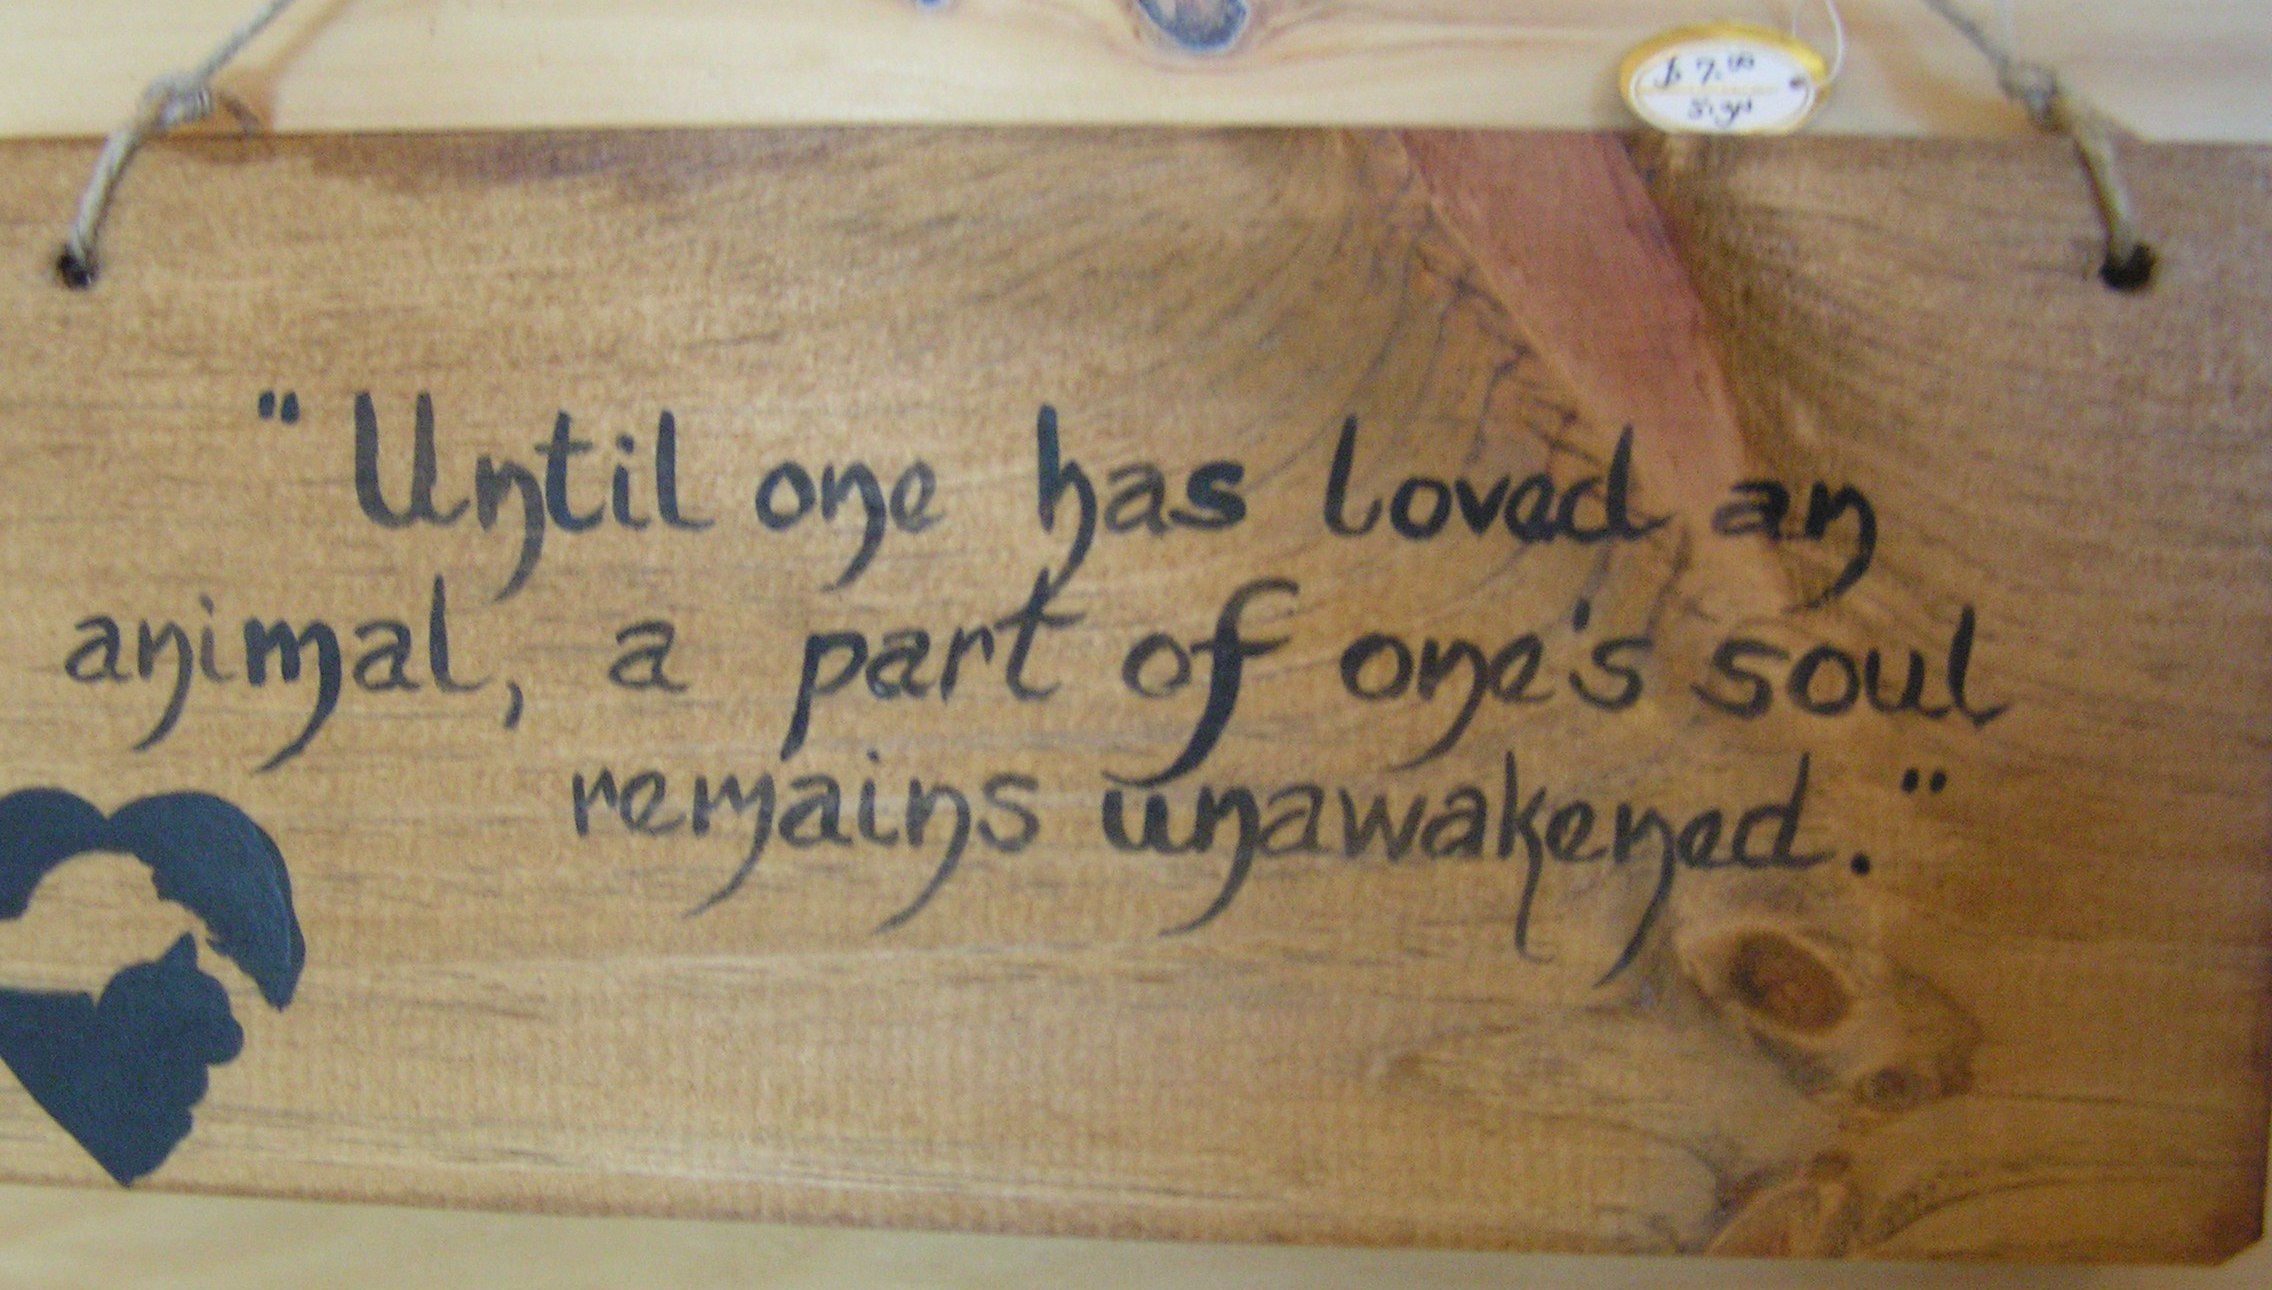 $ 7.00
Sign
"Until one has loved an
animal, a part of one's soul
remains unawakened."